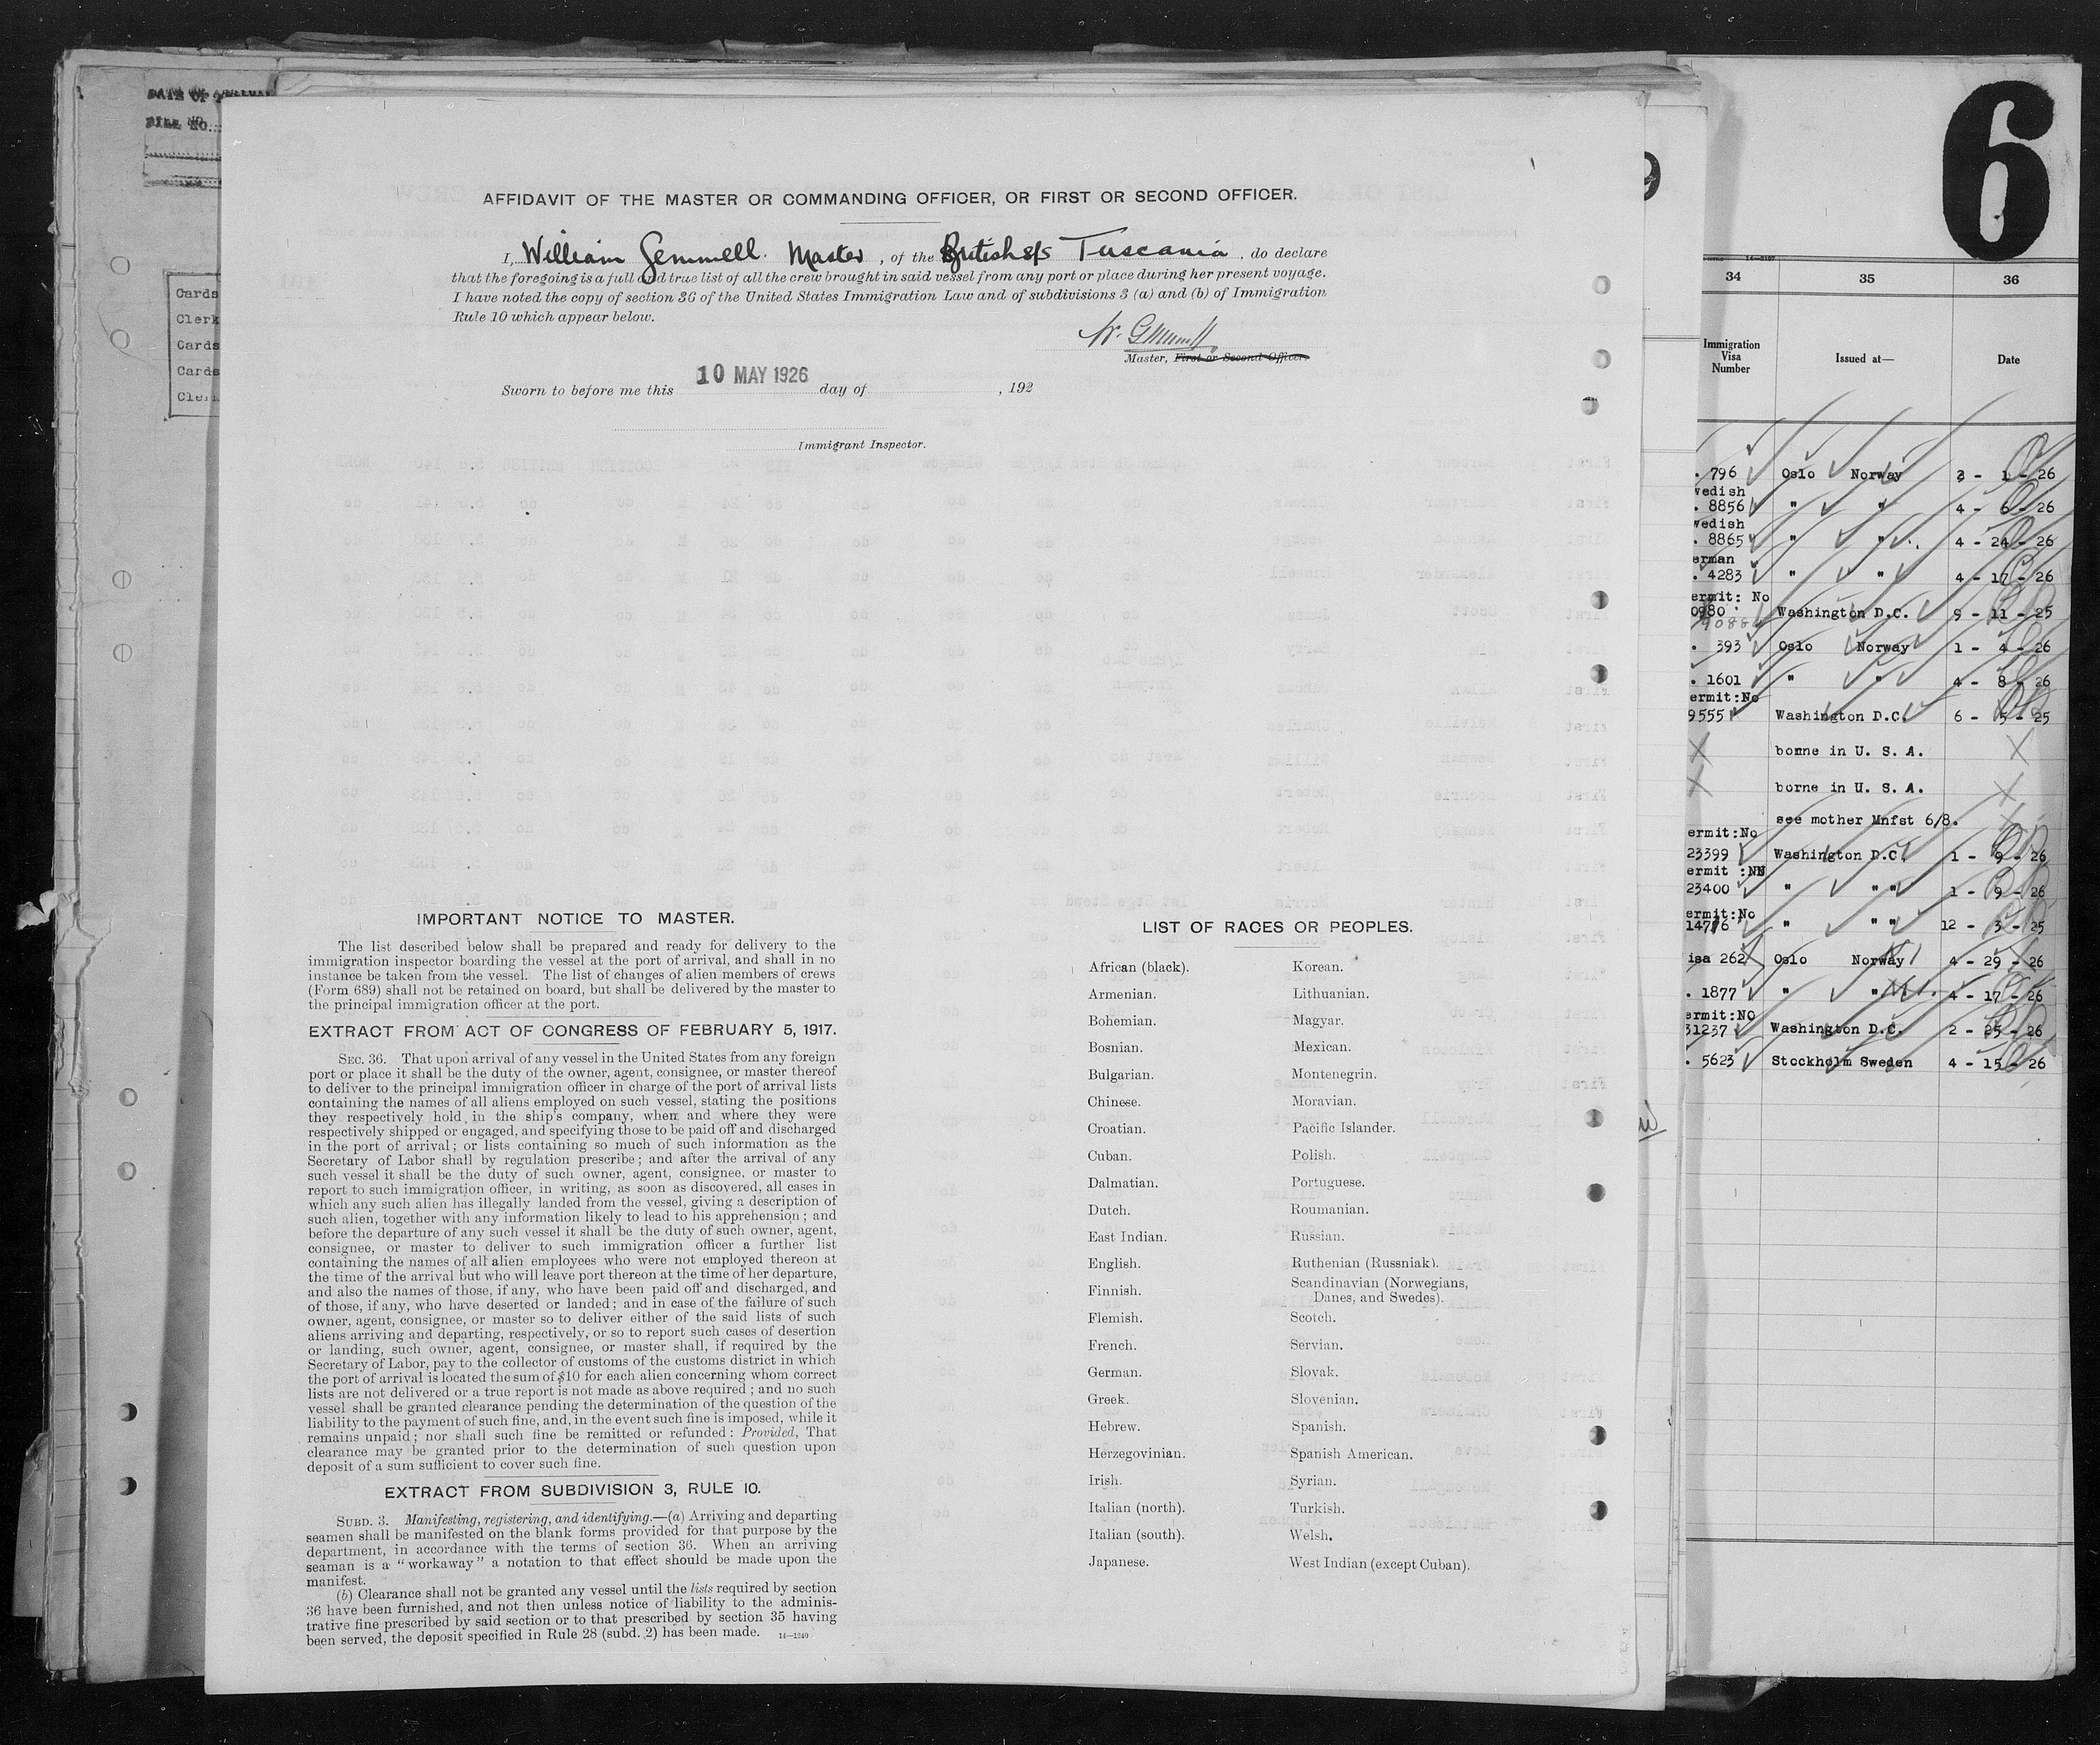 DATE OF
FILE NO.
Cards
Clerk
Cards
Cards
AFFIDAVIT OF THE MASTER OR COMMANDING OFFICER, OR FIRST OR SECOND OFFICER.
I, William Gemmell. Master, of the British s/s Tuscania, do declare
that the foregoing is a full and true list of all the crew brought in said vessel from any port or place during her present voyage.
I have noted the copy of section 36 of the United States Immigration Law and of subdivisions 3 (a) and (b) of Immigration
Rule 10 which appear below.
W. Gemmell
Master, First or Second Officer.
Sworn to before me this 10 MAY 1926 day of , 192
Immigrant Inspector.
IMPORTANT NOTICE TO MASTER.
The list described below shall be prepared and ready for delivery to the
immigration inspector boarding the vessel at the port of arrival, and shall in no
instance be taken from the vessel. The list of changes of alien members of crews
(Form 689) shall not be retained on board, but shall be delivered by the master to
the principal immigration officer at the port.
EXTRACT FROM ACT OF CONGRESS OF FEBRUARY 5, 1917.
SEC. 36. That upon arrival of any vessel in the United States from any foreign
port or place it shall be the duty of the owner, agent, consignee, or master thereof
to deliver to the principal immigration officer in charge of the port of arrival lists
containing the names of all aliens employed on such vessel, stating the positions
they respectively hold in the ship's company, when and where they were
respectively shipped or engaged, and specifying those to be paid off and discharged
in the port of arrival; or lists containing so much of such information as the
Secretary of Labor shall by regulation prescribe; and after the arrival of any
such vessel it shall be the duty of such owner, agent, consignee, or master to
report to such immigration officer, in writing, as soon as discovered, all cases in
which any such alien has illegally landed from the vessel, giving a description of
such alien, together with any information likely to lead to his apprehension; and
before the departure of any such vessel it shall be the duty of such owner, agent,
consignee, or master to deliver to such immigration officer a further list
containing the names of all alien employees who were not employed thereon at
the time of the arrival but who will leave port thereon at the time of her departure,
and also the names of those, if any, who have been paid off and discharged, and
of those, if any, who have deserted or landed; and in case of the failure of such
owner, agent, consignee, or master so to deliver either of the said lists of such
aliens arriving and departing, respectively, or so to report such cases of desertion
or landing, such owner, agent, consignee, or master shall, if required by the
Secretary of Labor, pay to the collector of customs of the customs district in which
the port of arrival is located the sum of $10 for each alien concerning whom correct
lists are not delivered or a true report is not made as above required; and no such
vessel shall be granted clearance pending the determination of the question of the
liability to the payment of such fine, and, in the event such fine is imposed, while it
remains unpaid; nor shall such fine be remitted or refunded: Provided, That
clearance may be granted prior to the determination of such question upon
deposit of a sum sufficient to cover such fine.
EXTRACT FROM SUBDIVISION 3, RULE 10.
SUBD. 3. Manifesting, registering, and identifying.—(a) Arriving and departing
seamen shall be manifested on the blank forms provided for that purpose by the
department, in accordance with the terms of section 36. When an arriving
seaman is a "workaway" a notation to that effect should be made upon the
manifest.
(b) Clearance shall not be granted any vessel until the lists required by section
36 have been furnished, and not then unless notice of liability to the adminis-
trative fine prescribed by said section or to that prescribed by section 35 having
been served, the deposit specified in Rule 28 (subd. 2) has been made. 14—1240
LIST OF RACES OR PEOPLES.
African (black).
Armenian.
Bohemian.
Bosnian.
Bulgarian.
Chinese.
Croatian.
Cuban.
Dalmatian.
Dutch.
East Indian.
English.
Finnish.
Flemish.
French.
German.
Greek.
Hebrew.
Herzegovinian.
Irish.
Italian (north).
Italian (south).
Japanese.
Korean.
Lithuanian.
Magyar.
Mexican.
Montenegrin.
Moravian.
Pacific Islander.
Polish.
Portuguese.
Roumanian.
Russian.
Ruthenian (Russniak).
Scandinavian (Norwegians,
Danes, and Swedes).
Scotch.
Servian.
Slovak.
Slovenian.
Spanish.
Spanish American.
Syrian.
Turkish.
Welsh.
West Indian (except Cuban).
6
34 35 36
Immigration
Visa
Number
Issued at—
Date
. 796 Oslo Norway 3 - 1 - 26
wedish
. 8856 " " 4 - 6 - 26
wedish
. 8865 " " 4 - 24 - 26
erman
. 4283 " " 4 - 17 - 26
ermit: No
0980 Washington D.C. 9 - 11 - 25
. 393 Oslo Norway 1 - 4 - 26
. 1601 " " 4 - 8 - 26
ermit:No
9555 Washington D.C. 6 - 5 - 25
X borne in U. S. A. X
X borne in U. S. A. X
see mother Mnfst 6/8.
ermit:No
23399 Washington D.C. 1 - 9 - 26
ermit :NN
23400 " " " 1 - 9 - 26
ermit:No
14776 " " " 12 - 3 - 25
isa 262 Oslo Norway 4 - 29 - 26
. 1877 " " 4 - 17 - 26
ermit:NO
31237 Washington D.C. 2 - 25 - 26
. 5623 Stockholm Sweden 4 - 15 - 26